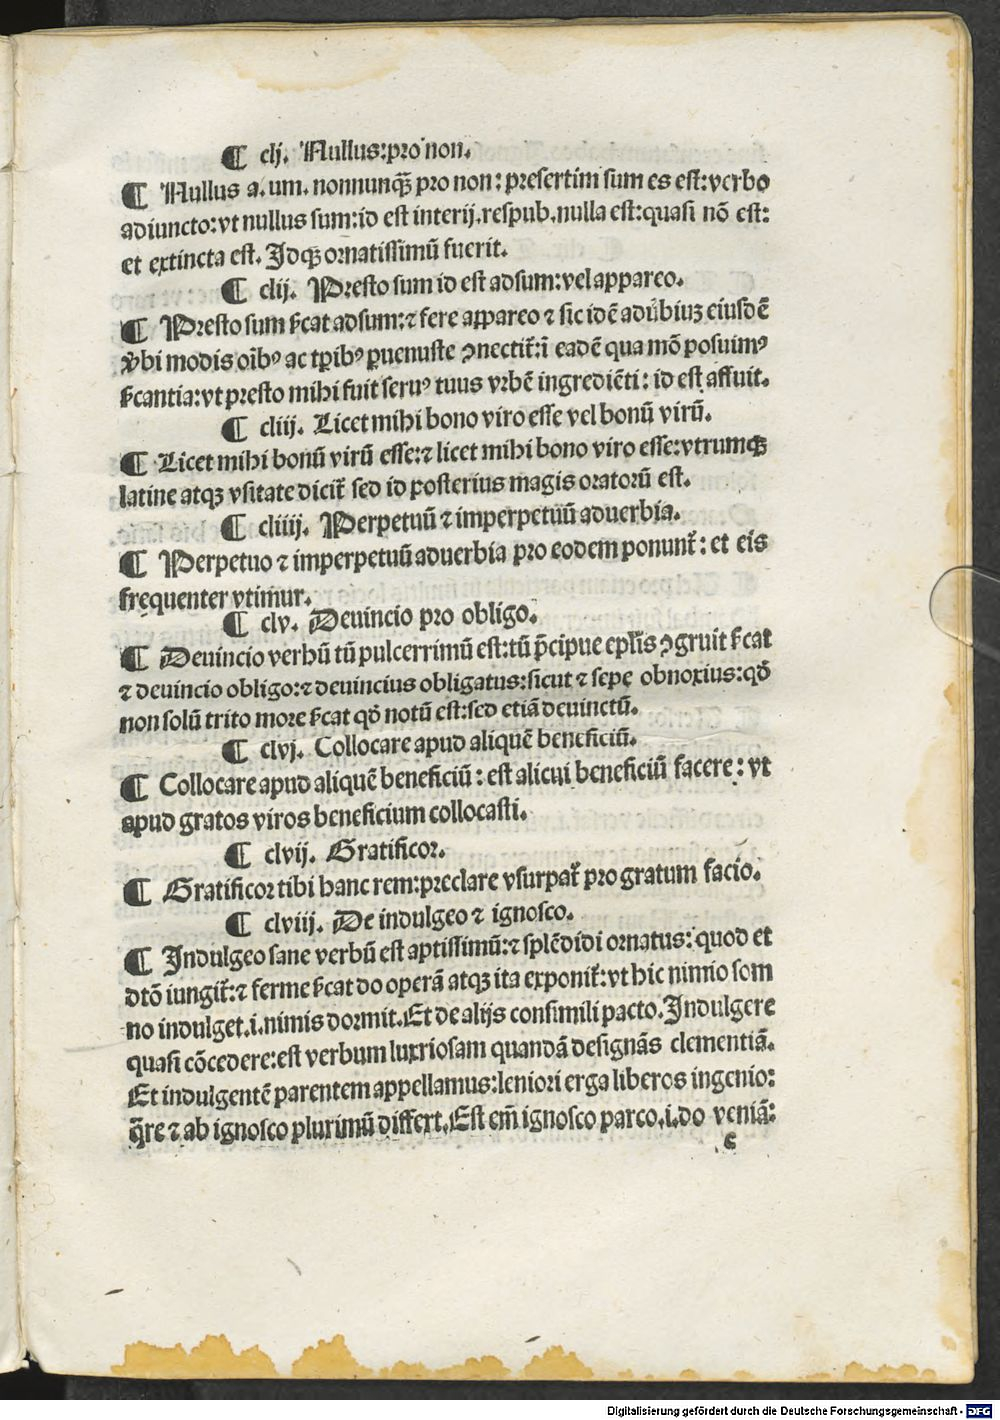 ¶ clj. Nullus: pro non.
¶ Nullus a. um. nonnunq̃ pro non: presertim sum es est: verbo
adiuncto: vt nullus sum: id est interij. respub. nulla est: quasi nõ est:
et extincta est. Idqꝫ ornatissimũ fuerit.
¶ clij. Presto sum id est adsum: vel appareo.
¶ Presto sum ſ̃cat adsum: ⁊ fere appareo ⁊ sic idẽ aduerbiuꝫ eiusdẽ
v̾bi modis oĩbꝰ ac tꝑibꝰ ꝑuenuste ꝯnectit᷑: ĩ eadẽ qua mõ posuimꝰ
ſ̃cantia: vt presto mihi fuit seruꝰ tuus vrbẽ ingrediẽti: id est affuit.
¶ cliij. Licet mihi bono viro esse vel bonũ virũ.
¶ Licet mihi bonũ virũ esse: ⁊ licet mihi bono viro esse: vtrumqꝫ
latine atqꝫ vsitate dicit᷑ sed id posterius magis oratorũ est.
¶ cliiij. Perpetuũ ⁊ imperpetuũ aduerbia.
¶ Perpetuo ⁊ imperpetuũ aduerbia pro eodem ponunt᷑: et eis
frequenter vtimur.
¶ clv. Deuincio pro obligo.
¶ Deuincio verbũ tũ pulcerrimũ est: tũ p̃cipue ep̃lis ꝯgruit ſ̃cat
⁊ deuincio obligo: ⁊ deuincius obligatus: sicut ⁊ sepę obnoxius: qõ
non solũ trito more ſ̃cat qõ notũ est: sed etiã deuinctũ.
¶ clvj. Collocare apud aliquẽ beneficiũ.
¶ Collocare apud aliquẽ beneficiũ: est alicui beneficiũ facere: vt
apud gratos viros beneficium collocasti.
¶ clvij. Gratificor.
¶ Gratificor tibi hanc rem: preclare vsurpat᷑ pro gratum facio.
¶ clviij. De indulgeo ⁊ ignosco.
¶ Indulgeo sane verbũ est aptissimũ: ⁊ splẽdidi ornatus: quod et
dtõ iungit᷑: ⁊ ferme ſ̃cat do operã atqꝫ ita exponit᷑: vt hic nimio som
no indulget. i. nimis dormit. Et de alijs consimili pacto. Indulgere
quasi cõcedere: est verbum luxriosam quandã designãs clementiã.
Et indulgentẽ parentem appellamus: leniori erga liberos ingenio:
q̃re ⁊ ab ignosco plurimũ differt. Est em̃ ignosco parco. i. do veniã:
c
Digitalisierung gefördert durch die Deutsche Forschungsgemeinschaft - DFG